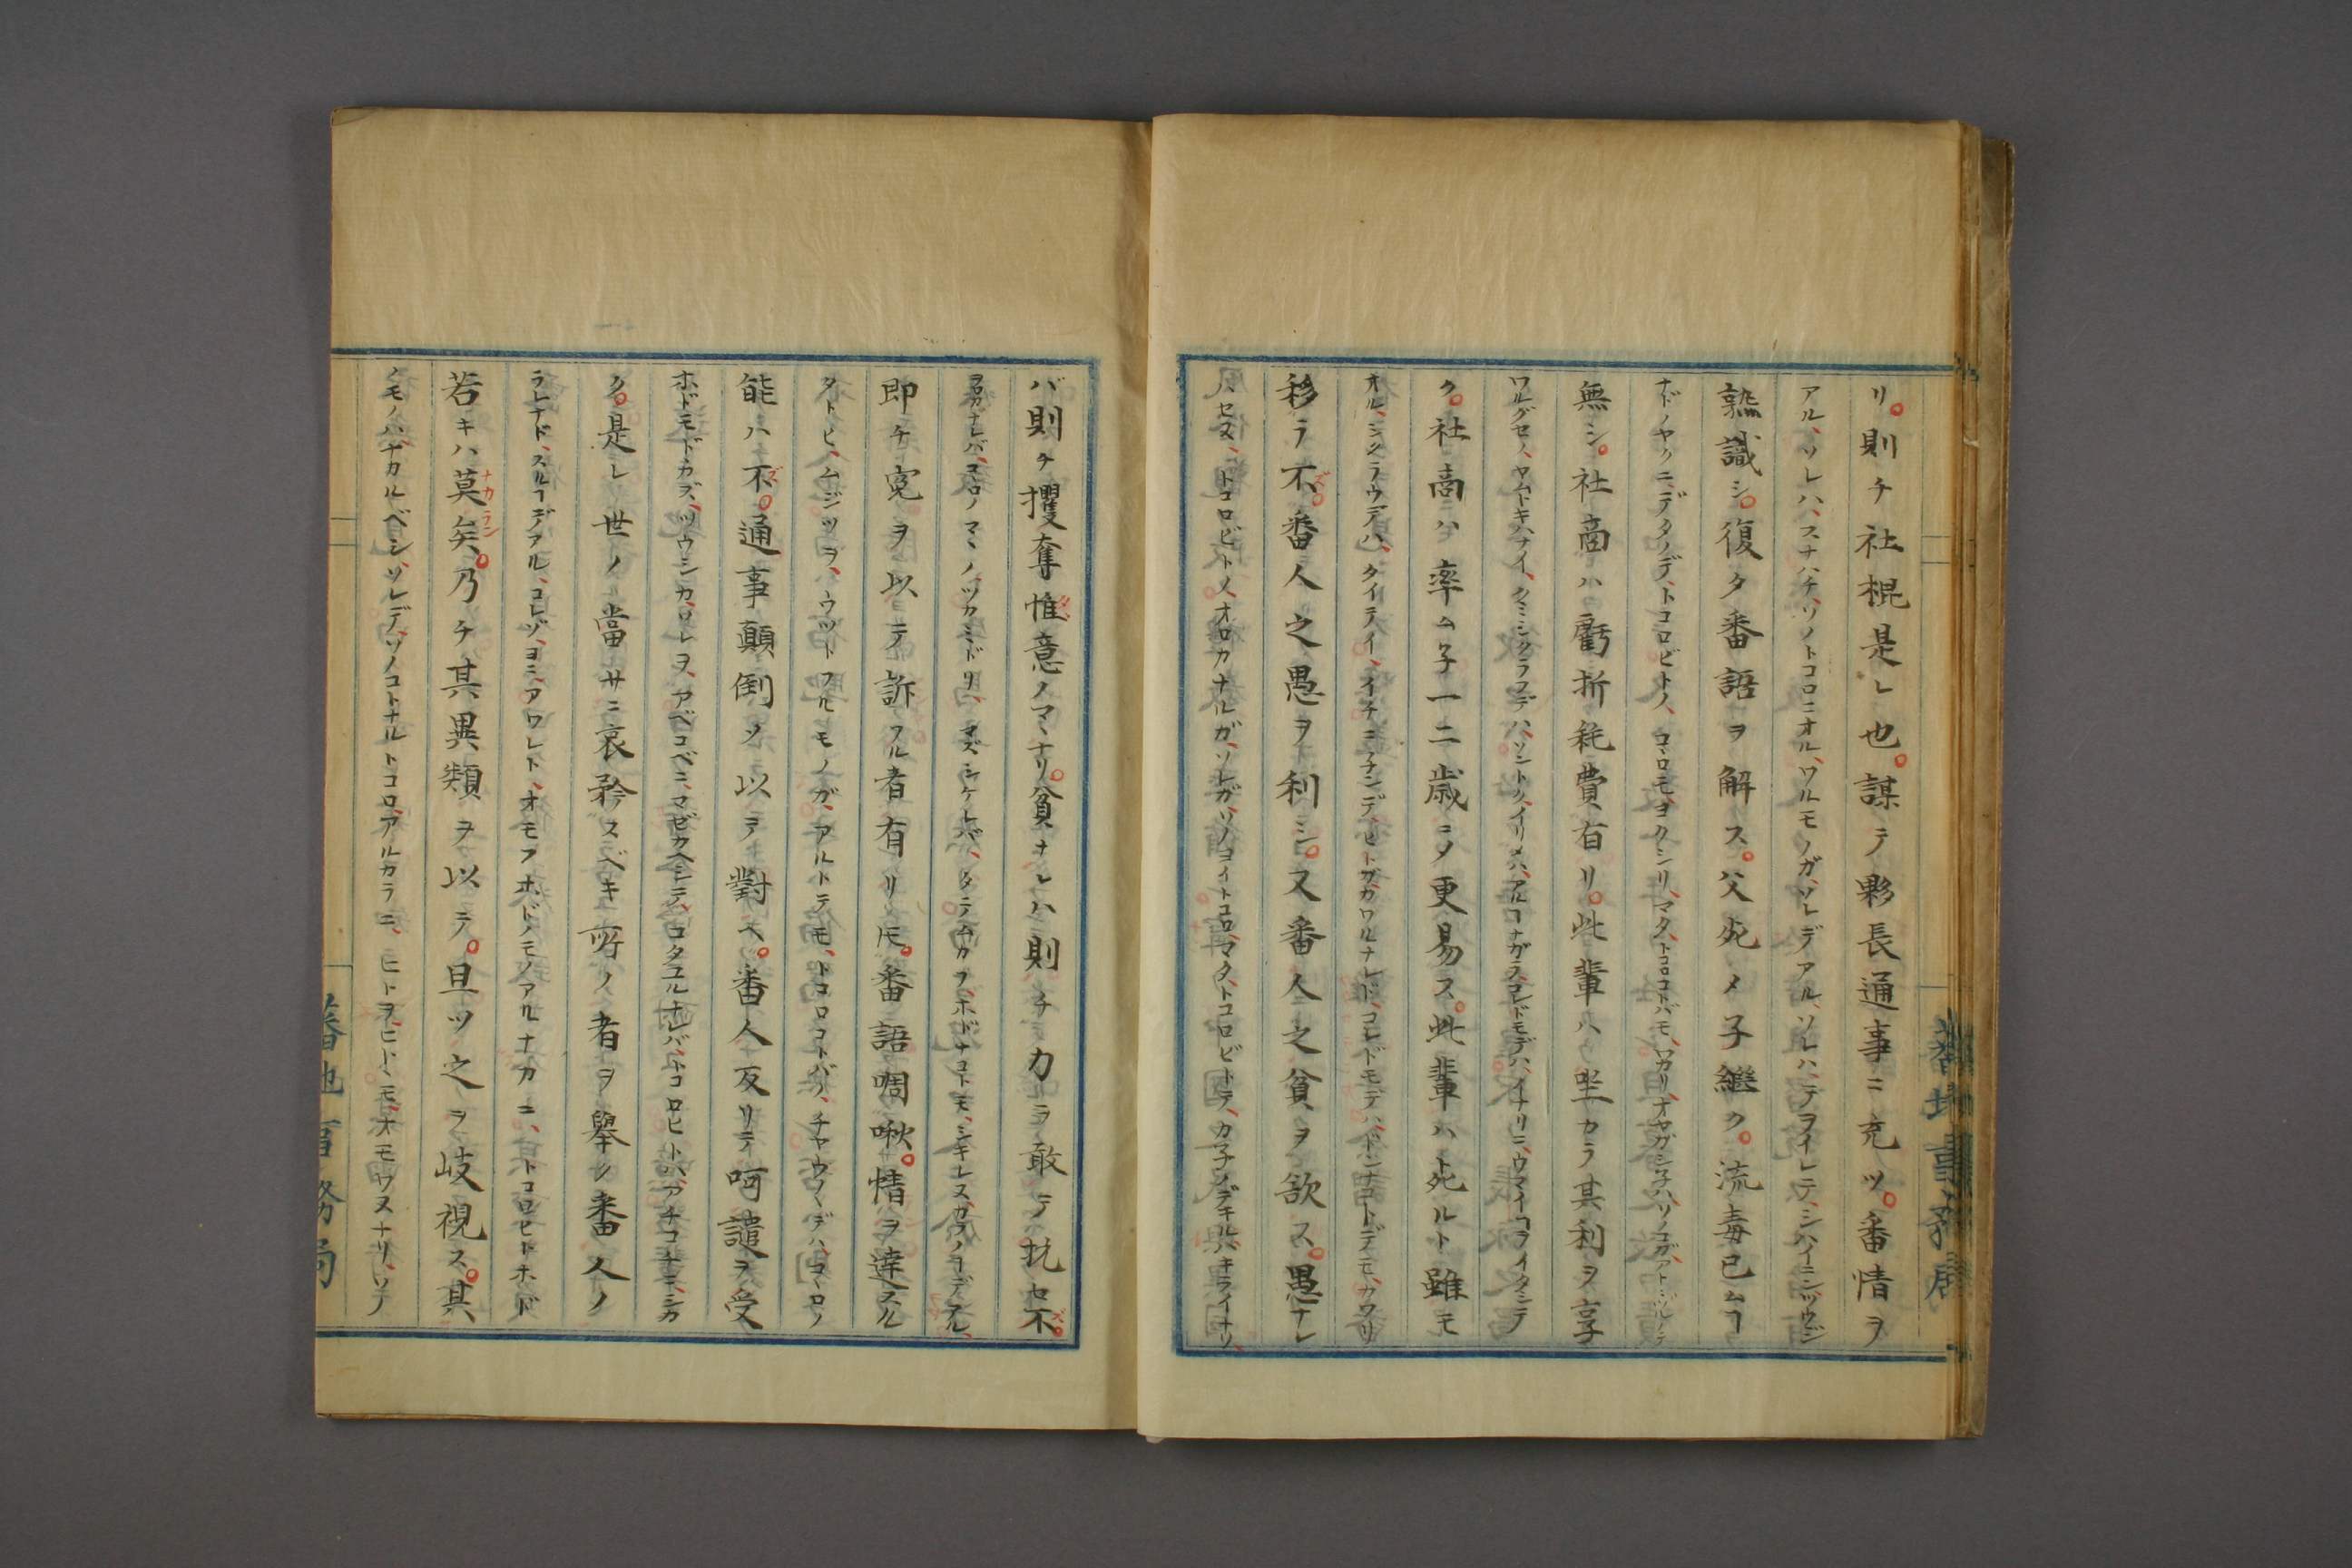 リ。則チ社棍是レ也。謀テ夥長通事ニ充ツ。番情ヲ
アル、ソレハ、スナハチ、ソノトコロニオル、ワルモノガ、ソレデアル、ソレハ、テヲイレテ、シハイニンツウジ
熟識シ。復タ番語ヲ解ス。父死メ子継ク。流毒已ムヿ
ナドノヤクニ、デタノデ、トコロビトノ、コヽロモ、ヨクシリ、マタ、トコロコトバモ、ワカリ、オヤガシ子ハ、ソノコガ、アトヲ
無シ。社商ハ虧折耗費有リ。此輩ハ坐カラ其利ヲ享
ワルグセノ、ヤムトキハナイ、クミシクラフデハ、ソントク、イリメハ、アルヿナガラ、コレドモデハ、イナリニ、ウマイヿヲイタシテ
ク。社商ハ率ム子一二歳ニメ更易ス。此輩ハ死ルト雖モ
オル、シクラウデハ、タイテイ、イチニ子ンデ、ヒトガカワルナレド、コレドモデハ、ドンナコトデデモ、カワリ
移ラ不。番人之愚ヲ利シ。又番人之貧ヲ欲ス。愚ナレ
ハセヌ、トコロビトノ、オロカナルガ、ソレガ、ソノヨイトコロ、マタ、トコロビトラ、カ子ノデキルハ、キライナリ、
バ則チ攫奪惟意ノマヽナリ。貧ナレハ則チ力ヲ敢テ抗セ不。
ヲロカナレバ、コヽロノマヽノ、ツカミドリ、マズシケレバ、タテムカフ、ホドナコトモ、シキレヌカラノヿデアル、
即チ寃ヲ以テ訴フル者有リ𪜈。番語啁啾。情ヲ達スル
タトヒ、ムジツヲ、ウツトフルモノガ、アルトテモ、トコロコトバノ、チヤウ〳〵デハ、コヽロノ
能ハ不。通事顛倒ソ以ヲ對ヘ。番人反リテ呵譴ヲ受
ホドモドカズ、ツウシカ、ソレヲ、アベコベニ、マゼカヘシテ、コタユルナレバ、トコロヒトハ、アチコチニ、シカ
ク。是レ世ノ當サニ哀矜スベキ所ノ者ヲ擧ク番人ノ
ラレナド、スルヿデアル、コレゾ、ヨニ、アワレト、オモフホドノモノアルナカニ、トコロヒトホド
若キハ莫矣。乃チ其異類ヲ以テ。且ツ之ヲ岐視ス。其
ノモノハ、ナカルベシ、ソレデ、ソノコトナルトコロ、アルカラニ、ヒトヲ、ヒトヽモ、オモワヌナリ、ソノ
蕃地事務局